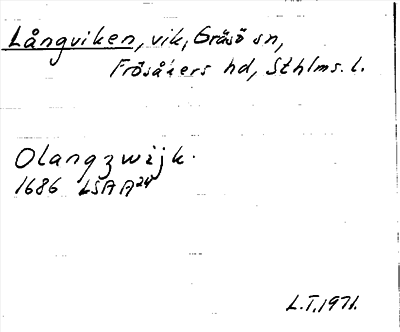 Långviken, vik, Gräsö sn,
Frösåkers hd, Sthlms. l.
Olangzwijk.
1686 LSA A24
L.T. 1971.